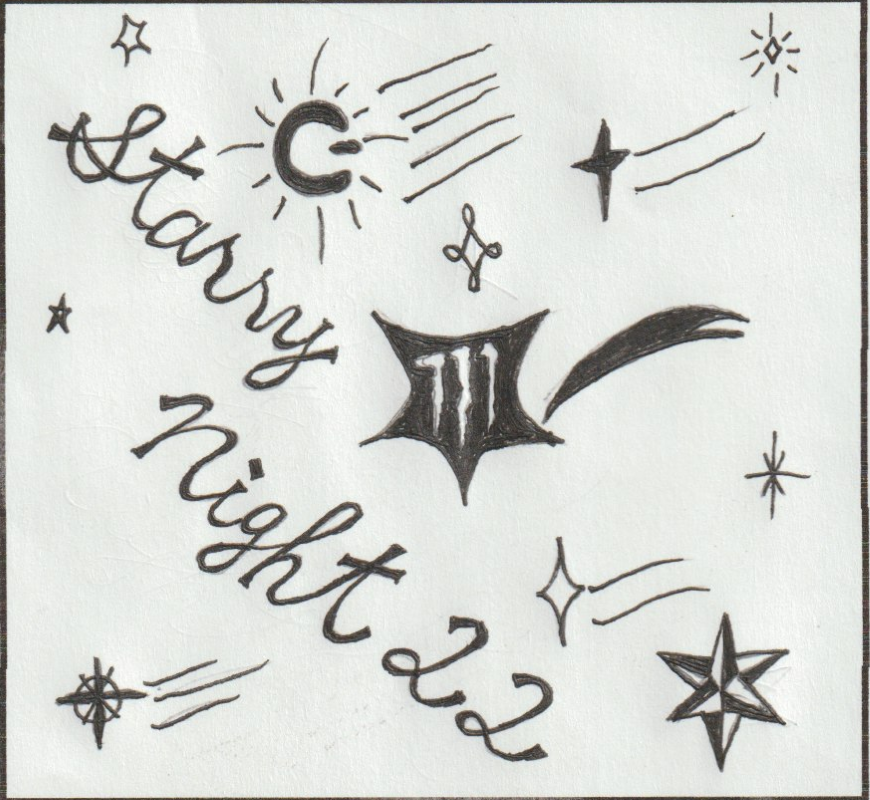 Starry
Night 22